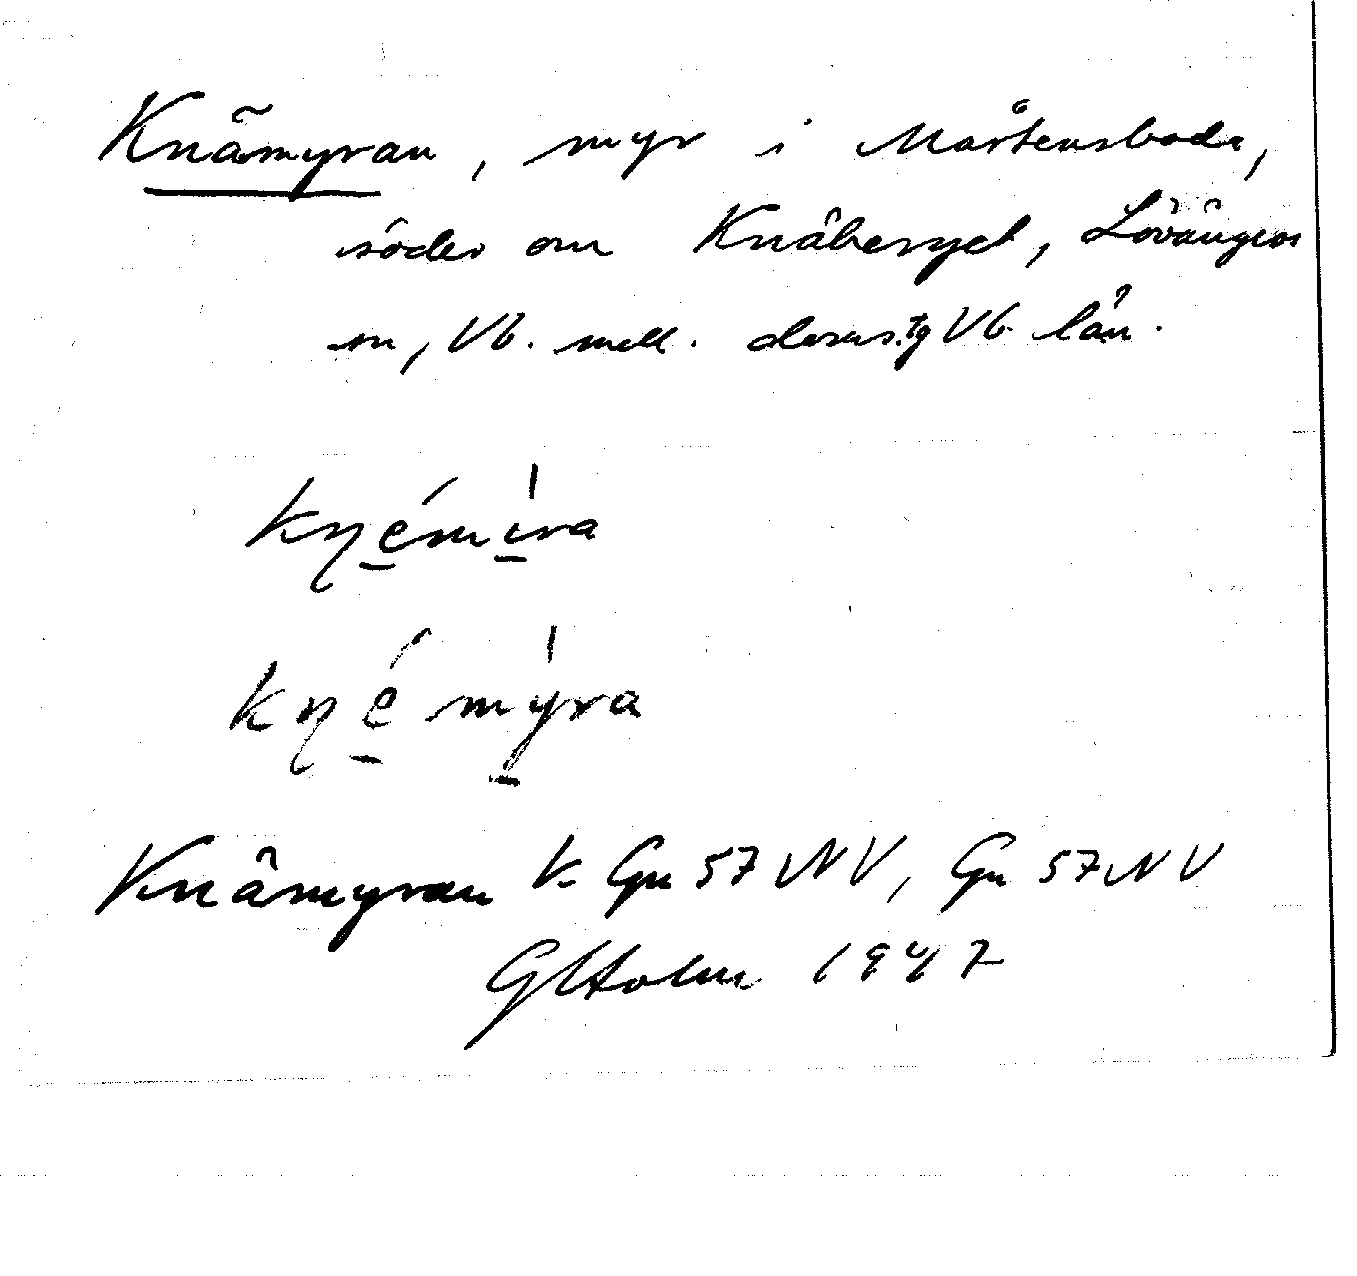 Knämyran, myr i Mårtensboda,
söder om Knäberget, Lövångers
sn, Vb. mell. doms.tg Vb län.
kn̦e̠´mì̠ra
kn̦e̠´mỳ̠ra
Knämyran K. Gn 57 NV, Gn 57 NV
G Holm 1947